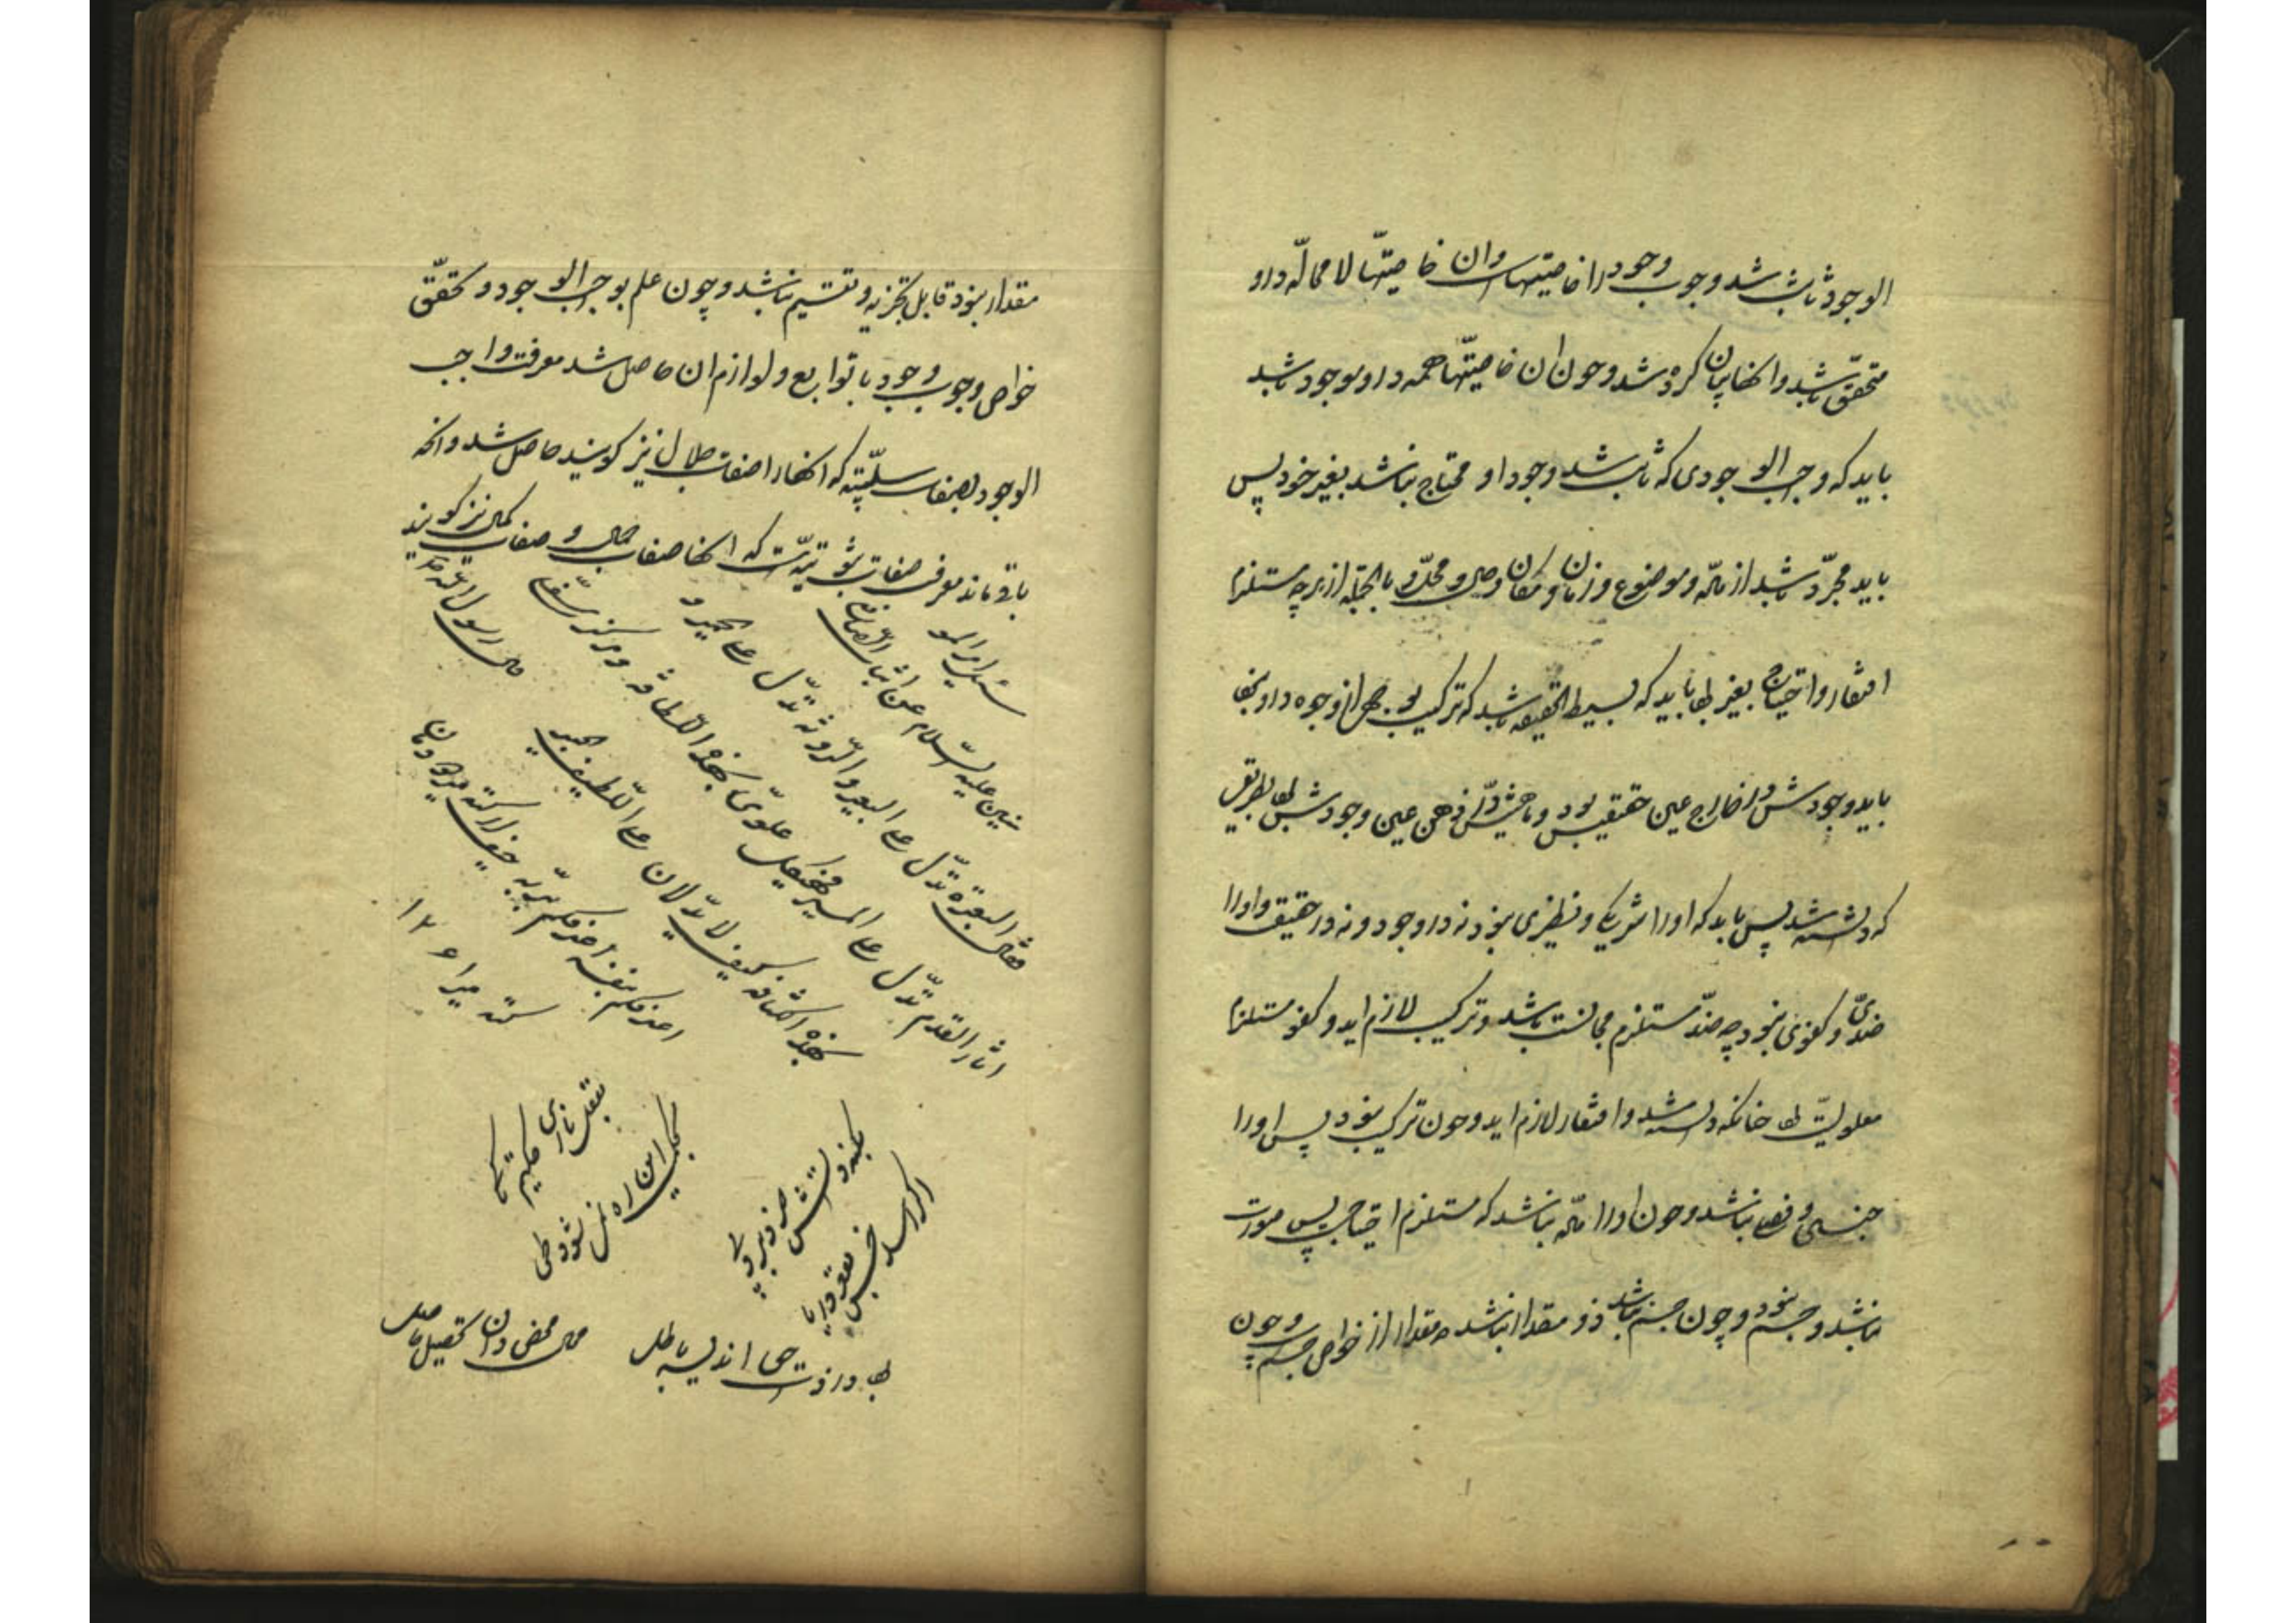 الوجود ثابت شد وجوب وجود را خاصیتهاست وان خاصیتها لا محاله درو
متحقق باشد وانها بیان کرده شد وچون ان خاصیتها همه درو موجود باشد
باید که واجب الوجودی که ثابت شد وجود او محتاج نباشد بغیر خود پس
باید مجرد باشد از ماده وموضوع وزمان ومکان و محل و بالجمله از هر چه مستلزم
افتقار واحتیاج بغیر باید که بسیط الحقیقه باشد که ترکیب بوجهی از وجوه درو
باید وجودش در خارج عین حقیقتش بود و ماهیتش در ذهن عین وجودش بطریق
که دانسته شد پس باید که او را شریکی ونظیری نبود نه در وجود ونه در حقیقت واورا
ضدی وکفوی نبود چه ضد مستلزم مجانست باشد وترکیب لازم اید وکفو مستلزم
معلولیت چنانکه دانسته شد وافتقار لازم اید وچون ترکیب نبود پس اورا
جنسی وفصلی نباشد وچون اورا ماده نباشد که مستلزم احتیاجست پس صورت
نباشد وجسم نبود وچون جسم نباشد ذو مقدار نباشد چه مقدار از خواص جسمست وچون
مقدار نبود قابل تجزیه وتقسیم نباشد وچون علم بواجب الوجود وتحقق
خواص وجوب وجود با توابع ولوازم ان حاصل شد معرفت واجب
الوجود بصفات سلبیه که انها را صفات جلال نیز کویند حاصل شد وانچه
باقی ماند معرفت صفات ثبوتیه است که انها صفات جمال و صفات کمال نیز کویند
سئل امیر المو
منین علیه السلام عن اثبات الصانع
فقال البعرة تدل علی البعیر والروثة تدل علی الحمیر و
اثار القدم تدل علی المسیر فهیکل علوی بهذه اللطافة ومرکز سفلی
بهذه الکثافة کیف لا یدلان علی اللطیف الخبیر
قال رسول الله
احذرکم بنفسه احذرکم
اکر رسد خس بقعر دریا
بکنه ذاتش خرد برد پی
بعقل نازی حکیم تا کی
بفکرت این ره نمیشود طی
بود در ذات حق اندیشه باطل
محال محض دان تحصیل حاصل